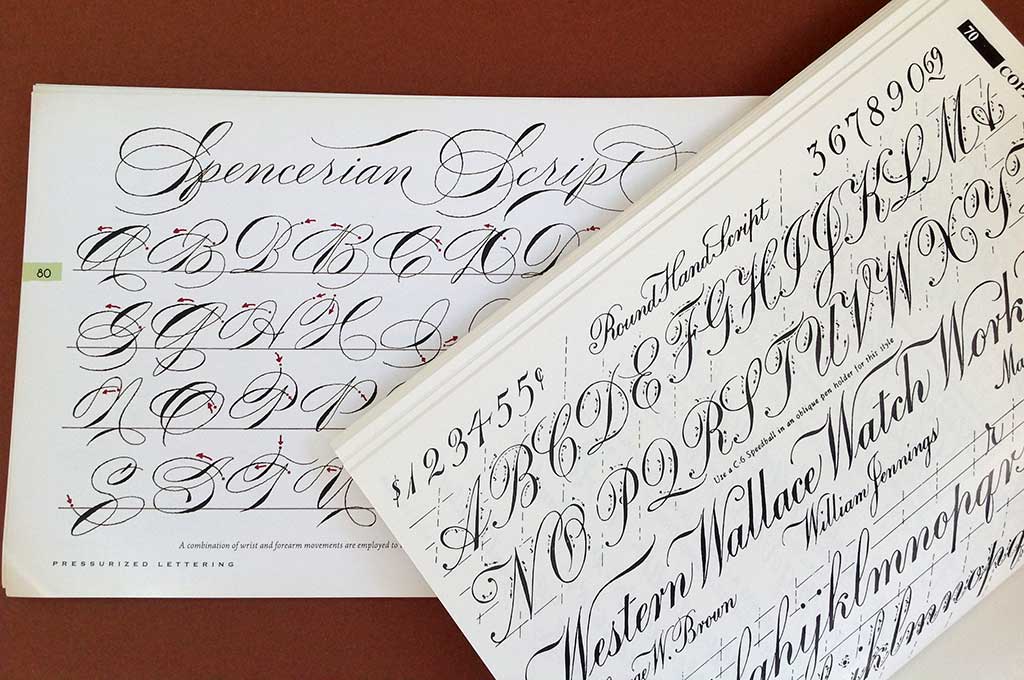 Spencerian Script
A B B B C D D
80
G G H H I
N O P P
S S T U
A combination of wrist and forearm movements are employed to
PRESSURIZED LETTERING
70
3 6 7 8 9 0 69
$1 2 3 4 5 5¢
Round Hand Script
A B C D E F G H I J K L M &
N O P Q R S T U V W X Y
Use a C-6 Speedball in an oblique pen holder for this style
Western Wallace Watch Work
William Jennings
W. Brown
hyklmnopqr
klmnopq